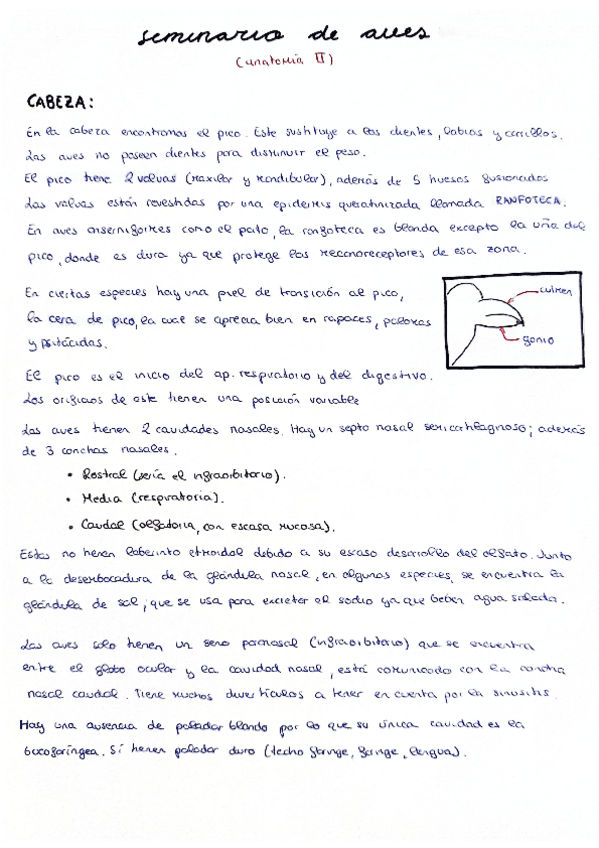 seminario de aves
(anatomía II)
CABEZA:
En la cabeza encontramos el pico. Este sustituye a los dientes, labios y carrillos.
Las aves no poseen dientes para disminuir el peso.
El pico tiene 2 valvas (maxilar y mandibular), además de 5 huesos fusionados
Las valvas están revestidas por una epidermis queratinizada llamada RANFOTECA.
En aves anseriformes como el pato, la ranfoteca es blanda excepto la uña del
pico, donde es dura ya que protege los mecanoreceptores de esa zona.
En ciertas especies hay una piel de transición al pico,
la cera de pico, la cual se aprecia bien en rapaces, palomas
y psitácidas.
culmen
gonio
El pico es el inicio del ap. respiratorio y del digestivo.
Los orificios de este tienen una posición variable
Las aves tienen 2 cavidades nasales. Hay un septo nasal semicartilaginoso; además
de 3 conchas nasales.
• Rostral (sería el infraorbitario).
• Media (respiratoria).
• Caudal (olfatoria, con escasa mucosa).
Estas no tienen laberinto etmoidal debido a su escaso desarrollo del olfato. Junto
a la desembocadura de la glándula nasal, en algunas especies, se encuentra la
glándula de sal, que se usa para excretar el sodio ya que beben agua salada.
Las aves solo tienen un seno paranasal (infraorbitario) que se encuentra
entre el globo ocular y la cavidad nasal, está comunicado con la concha
nasal caudal. Tiene muchos divertículos a tener en cuenta por la sinusitis.
Hay una ausencia de paladar blando por lo que su única cavidad es la
bucofaríngea. Sí tienen paladar duro (techo faringe, laringe, lengua).